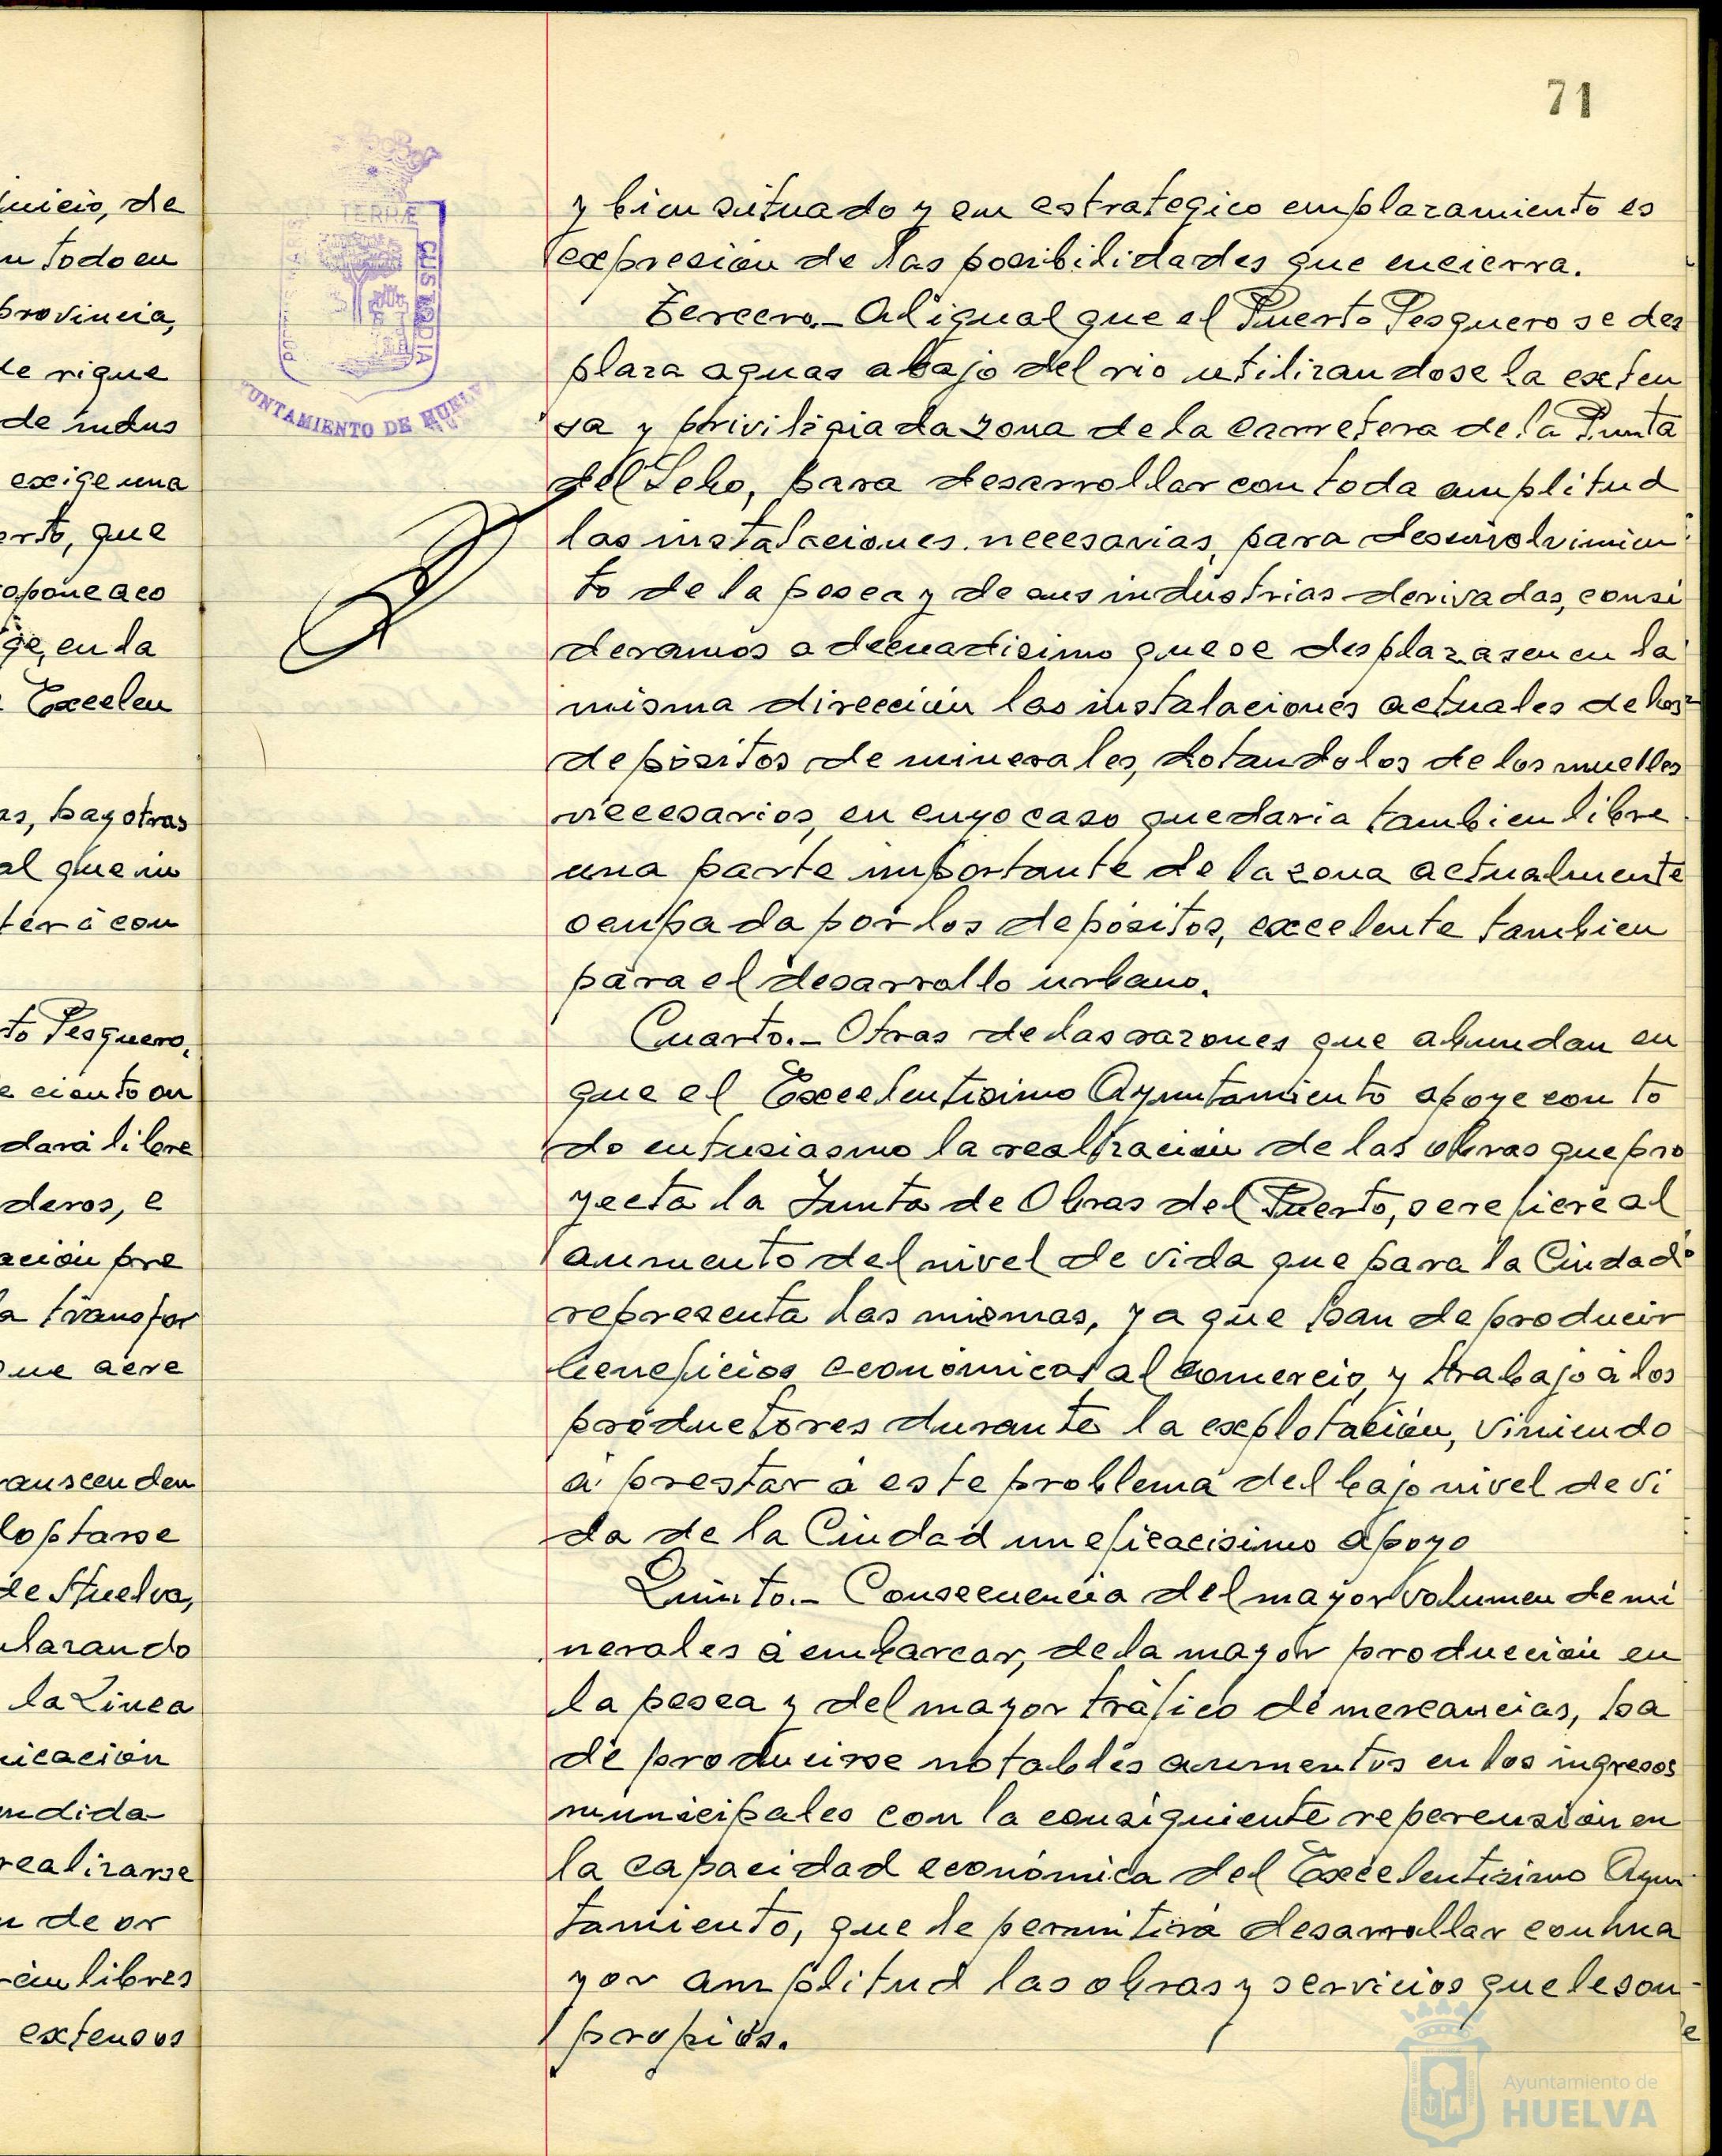 71
y bien situado y en estrategico emplazamiento es
expresion de las posibilidades que encierra.
Tercero.- Al igual que el Puerto Pesquero se des
plaza aguas abajo del rio utilizandose la exten
sa y priviligiada zona de la carretera de la Punta
del Sebo, para desarrollar con toda amplitud
las instalaciones necesarias, para desenvolvimien
to de la pesca y de sus industrias derivadas, consi
deramos adecuadisimo que se desplazasen en la
misma dirección las instalaciones actuales de los
depósitos de minerales, dotandolos de los muelles
necesarios, en cuyo caso quedaria tambien libre
una parte importante de la zona actualmente
ocupada por los depósitos, excelente tambien
para el desarrollo urbano.
Cuarto.- Otras de las razones que abundan en
que el Excelentisimo Ayuntamiento apoye con to
do entusiasmo la realización de las obras que pro
yecta la Junta de Obras del Puerto, se refiere al
aumento del nivel de vida que para la Ciudad
representa las mismas, ya que han de producir
beneficios económicos al comercio, y trabajo á los
productores durante la explotación, viniendo
á prestar á este problema del bajo nivel de vi
da de la Ciudad un eficacisimo apoyo
Quinto.- Consecuencia del mayor volumen de mi
nerales á embarcar, de la mayor producción en
la pesca y del mayor tráfico de mercancias, ha
de producirse notables aumentos en los ingresos
municipales con la consiguiente repercusión en
la capacidad económica del Excelentisimo Ayun
tamiento, que le permitirá desarrollar con ma
yor amplitud las obras y servicios que le son
propios.
TERRÆ
CUSTODIA
UNTAMIENTO DE HUELV
juicio, de
n todo en
provincia,
le rigue
de indus
exige una
erto, que
opone aco
ge, en la
Excelen
as, hay otras
al que in
terá con
to Pesquero,
e ciento on
dará libre
deros, e
ación pre
a transfor
que acre
ranscenden
loptarse
de Huelva,
plazando
la Linea
nicación
ndida
realizarse
n de or
rán libres
extensos
Ayuntamiento de
HUELVA